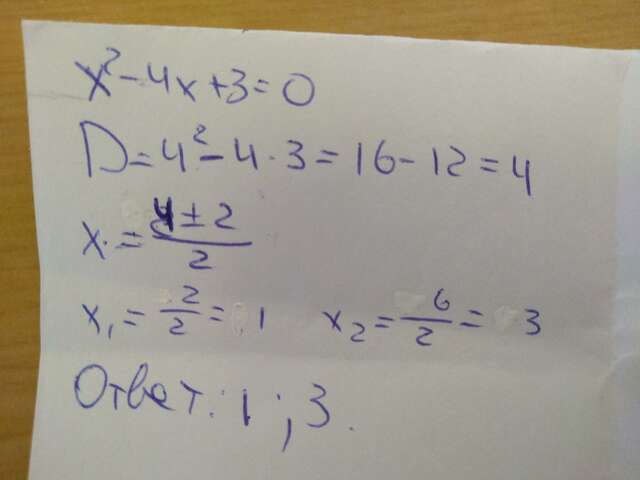 x²-4x+3=0
D=4²-4·3=16-12=4
x=4±2/2
x₁=2/2=1 x₂=6/2=3
Ответ: 1; 3.